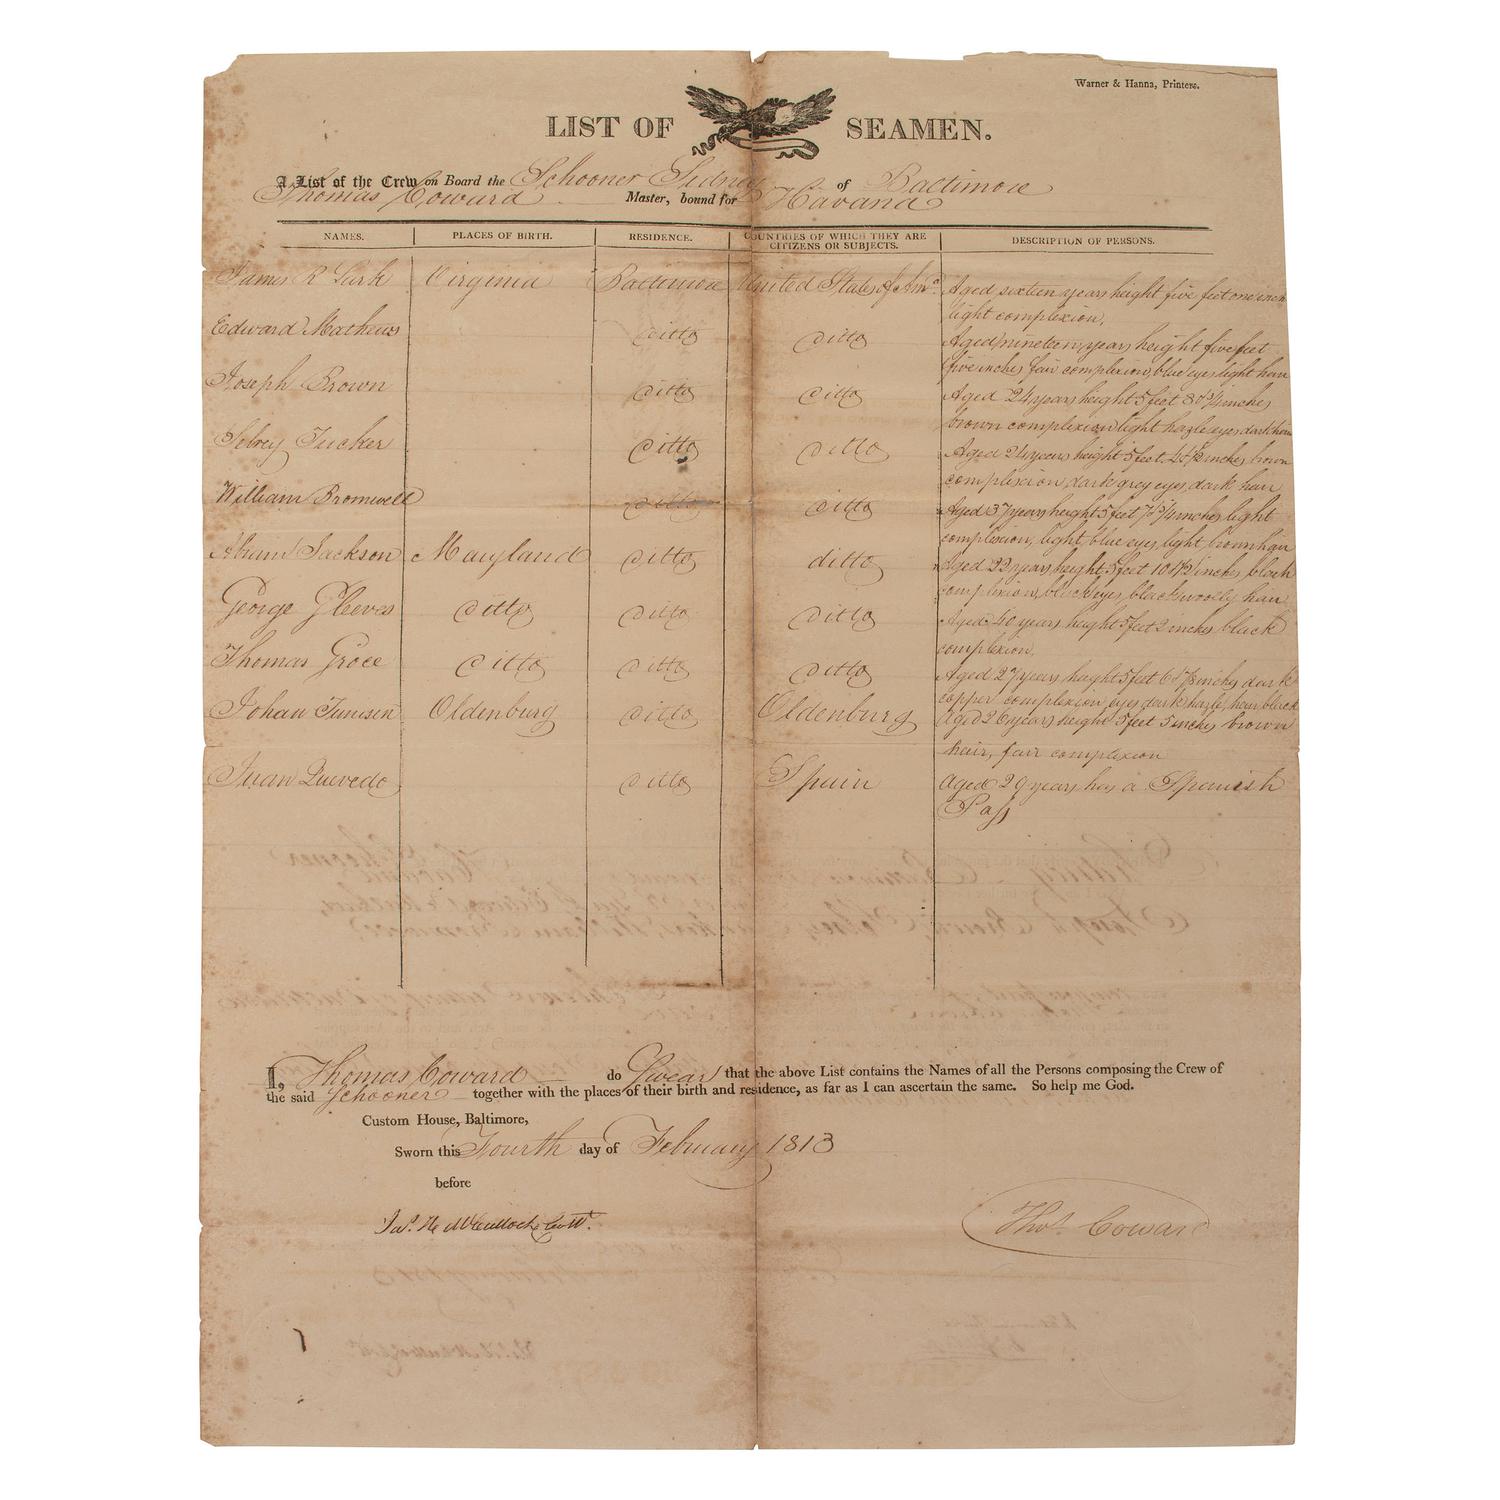 Warner & Hanna, Printers.
LIST OF SEAMEN.
A List of the Crew on Board the Schooner Sidney of Baltimore
Thomas Coward Master, bound for Havana
NAMES. PLACES OF BIRTH. RESIDENCE. COUNTRIES OF WHICH THEY ARE CITIZENS OR SUBJECTS. DESCRIPTION OF PERSONS.
James R Virginia Baltimore United States of Amᵃ. Aged sixteen years height five feet one inch
light complexion,
Edward Mathews ditto ditto Aged nineteen years height five feet
five inches fair complexion, blue eyes light hair
Joseph Brown ditto ditto Aged 24 years height 5 feet 8 3/4 inches
brown complexion light hazle eyes dark hair
Tucker ditto ditto Aged 24 years height 5 feet 4 1/2 inches brown
complexion, dark grey eyes, dark hair
William Bromwell ditto ditto Aged 37 years height 5 feet 7 3/4 inches light
complexion, light blue eyes light brown hair
Jackson Maryland ditto ditto Aged years height 5 feet 10 1/2 inches black
complexion, black eyes, black woolly hair
George Gleeves ditto ditto ditto Aged 40 years height 5 feet 2 inches black
complexion.
Thomas Groce ditto ditto ditto Aged 27 years height 5 feet 6 7/8 inches dark
copper complexion, eyes dark hazle, hair black
Johan Tunisen Oldenburg ditto Oldenburg Aged 26 years height 5 feet 5 inches brown
hair, fair complexion
Juan Quevedo ditto Spain Aged 29 years has a Spanish
Pass
I, Thomas Coward do Swear that the above List contains the Names of all the Persons composing the Crew of
the said Schooner together with the places of their birth and residence, as far as I can ascertain the same. So help me God.
Custom House, Baltimore,
Sworn this Fourth day of February 1813
before
Jaˢ. H McCulloch Collʳ.
Thoˢ. Coward